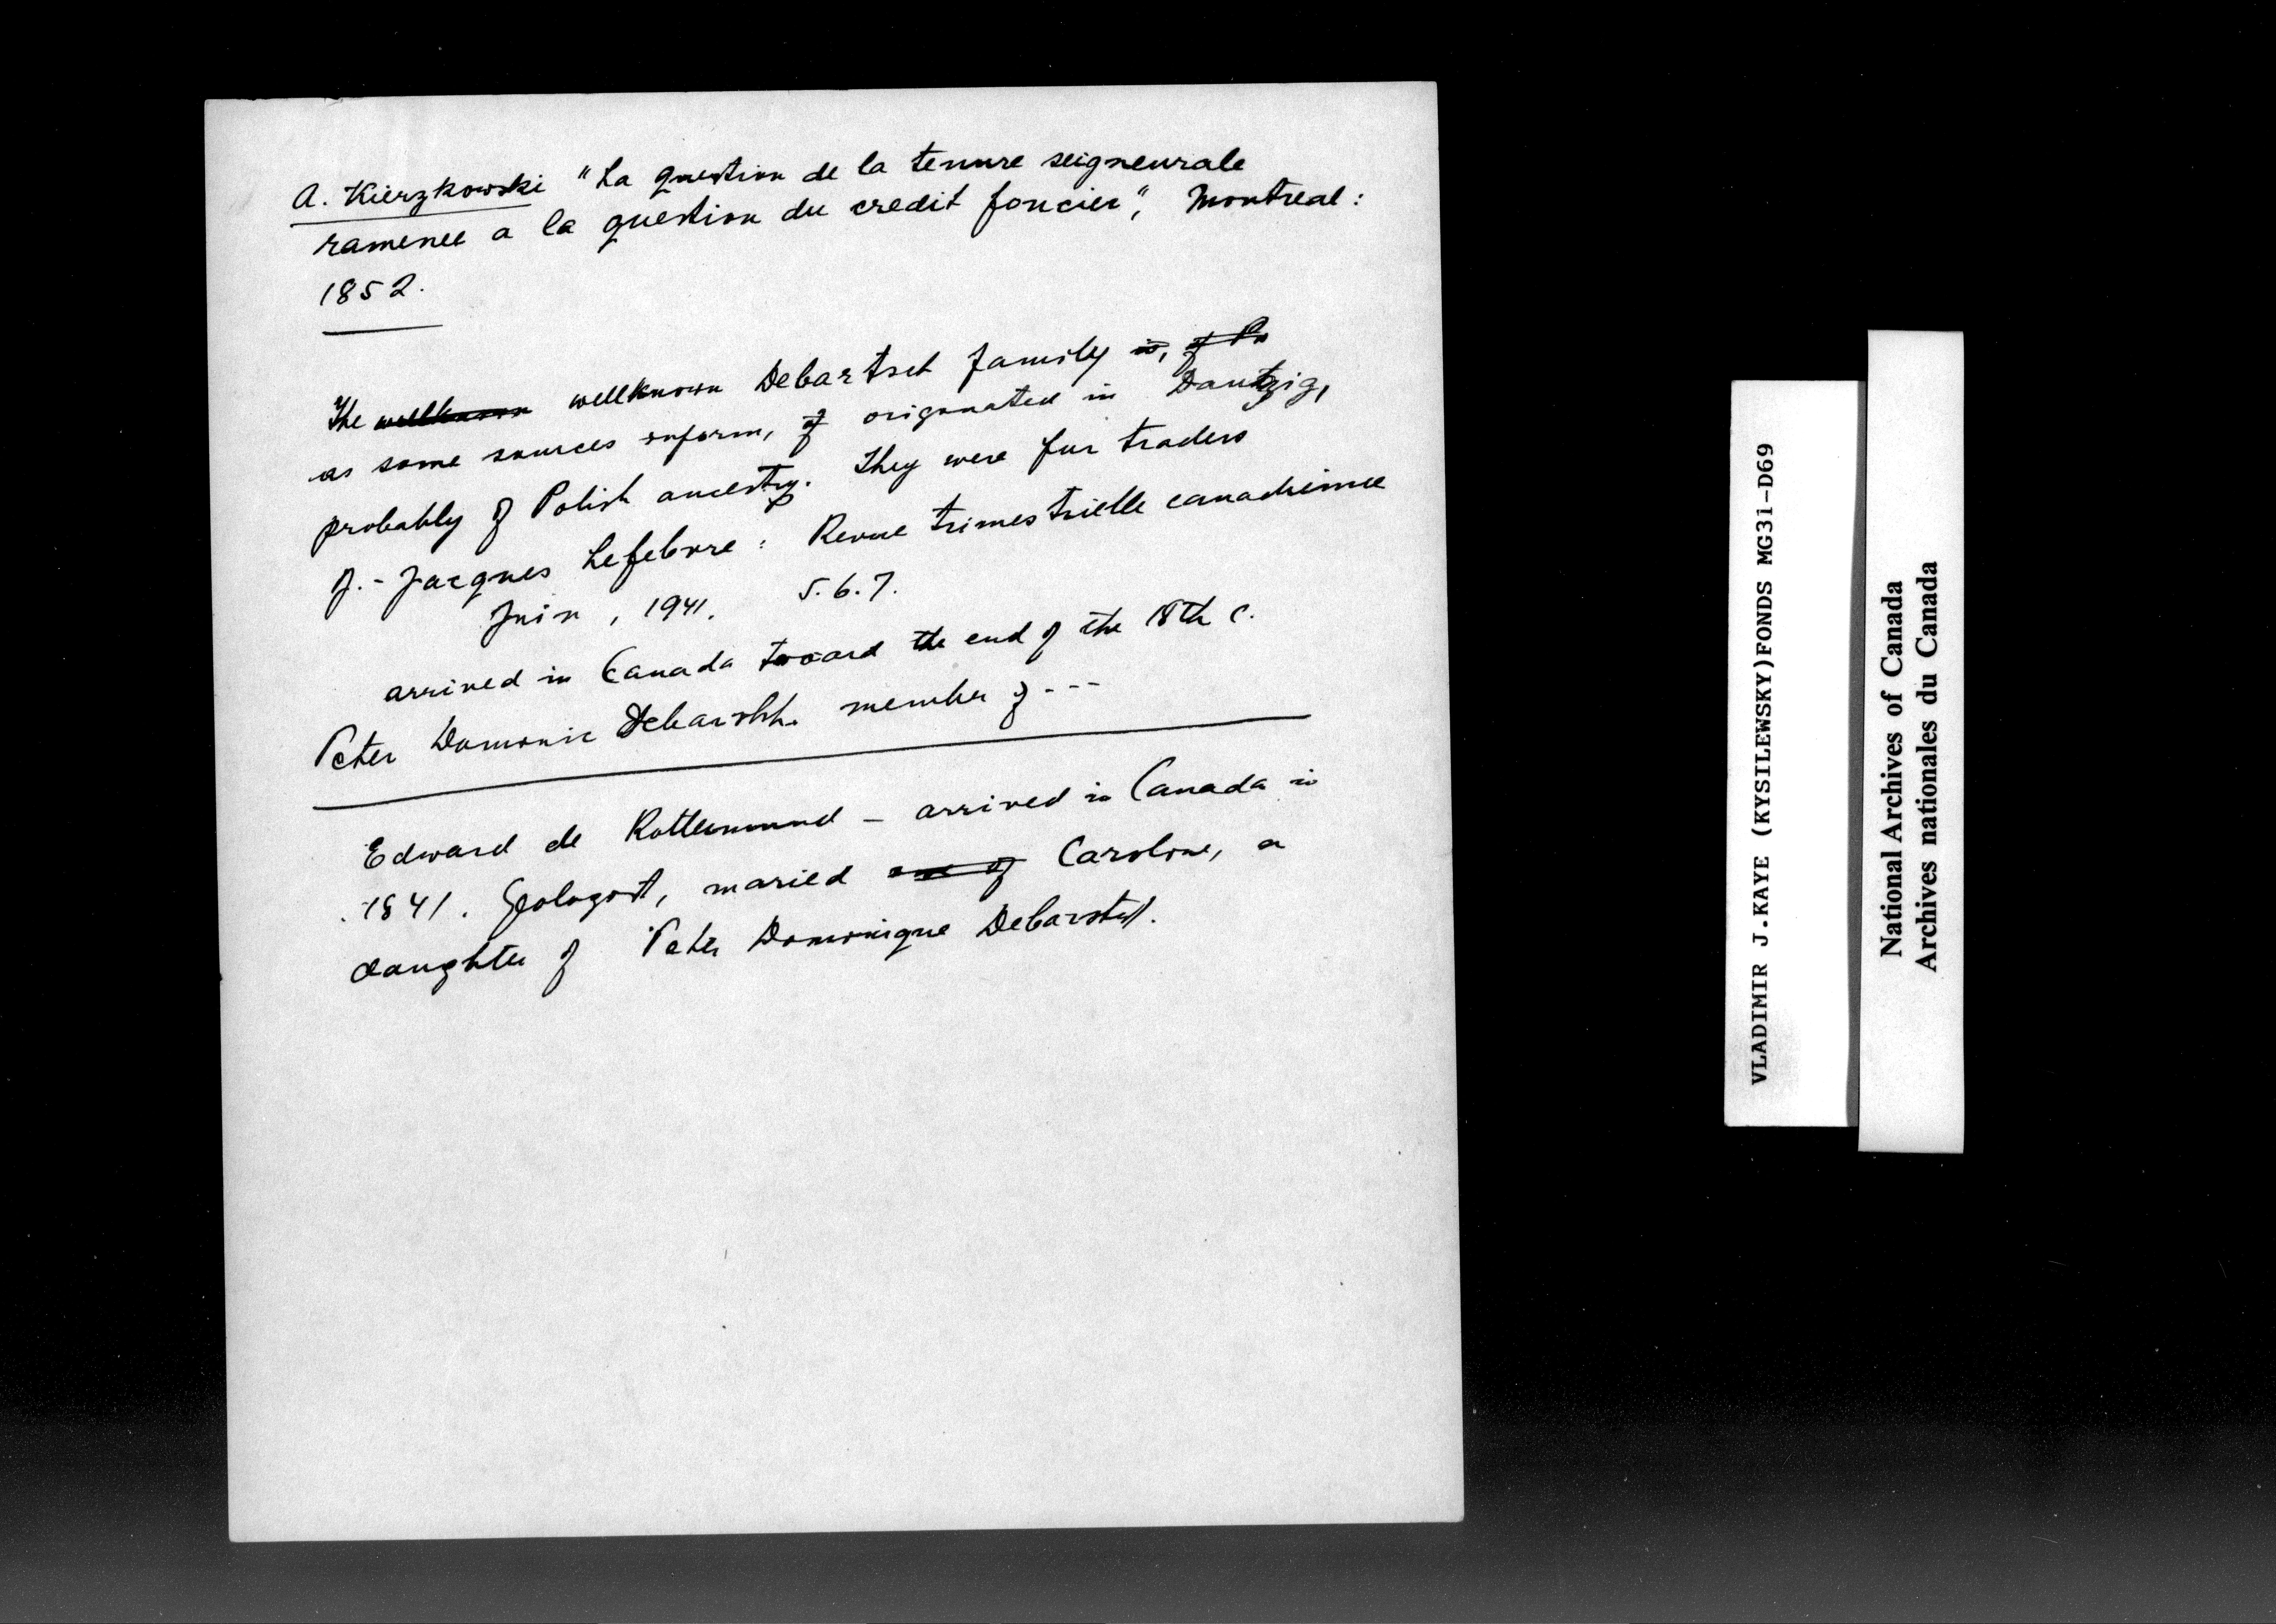 A. Kierzkowski "La question de la tenure seigneurale
ramenee a la question du credit foncier", Montreal:
1852.
The wellknown wellknown Debartsch family is, of Po
as some sources inform, of origonated in Dantzig,
probably of Polish ancestry. They were fur traders
J.-Jacques Lefebvre: Revue trimestrielle canadienne
Juin, 1941. 5.6.7.
arrived in Canada toward the end of the 18th c.
Peter Domonic Debartsh. member of ---
Edward de Rottermund - arrived in Canada in
1841. Geologist, maried one of Caroline, a
daughter of Peter Domonique Debartsch.
VLADIMIR J.KAYE (KYSILEWSKY)FONDS MG31-D69
National Archives of Canada
Archives nationales du Canada